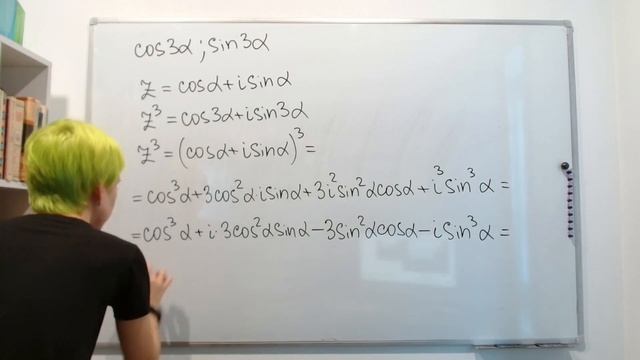 cos3α ; sin3α
z = cosα + i sinα
z³ = cos3α + i sin3α
z³ = (cosα + i sinα)³ =
= cos³α + 3cos²α i sinα + 3i² sin²α cosα + i³ sin³α =
= cos³α + i·3cos²α sinα − 3sin²α cosα − i sin³α =